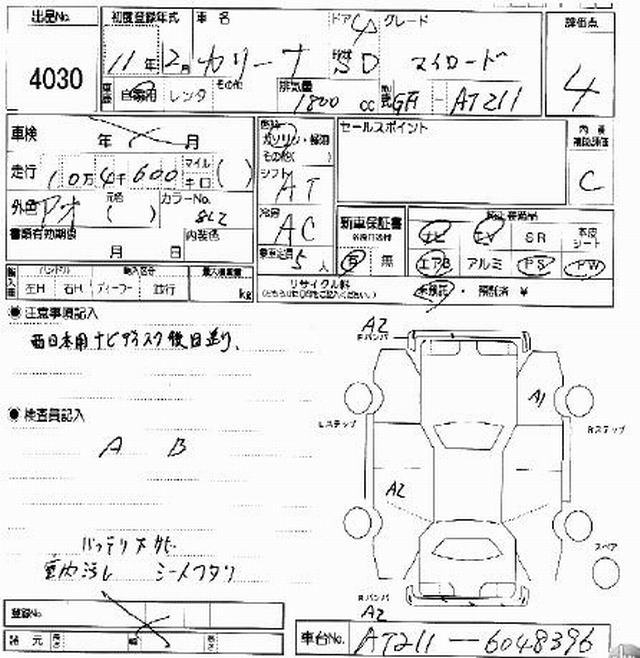 出品No. 4030
初度登録年式 11年 2月
車名 カリーナ
ドア 4 SD
グレード マイロード
評価点 4
自家用 レンタ その他
排気量 1800 cc
型式 GF - AT211
車検 年 月
走行 10万4千600 マイル キロ ( )
外色 アオ 元色 ( ) カラーNo. 8L2
書類有効期限 月 日 内装色
燃料 ガソリン・軽油 その他( )
シフト AT
冷房 AC
乗車定員 5 人
セールスポイント
内装補助評価 C
新車保証書 有 無
純正装備品
ナビ TV SR 本皮シート
エアB アルミ PS PW
輸入車 ハンドル 左H 右H 輸入区分 ディーラー 並行 最大積載量 kg
リサイクル料 未預託・預託済 ¥
● 注意事項記入
西日本用ナビディスク後日送り、
● 検査員記入
A B
バッテリーサビ
室内汚レ シートヘタリ
A2 Fバンパ
A1
Lステップ Rステップ
A2
スペア
Rバンパ A2
登録No.
諸元 長さ 幅 高さ
車台No. AT211-6048396